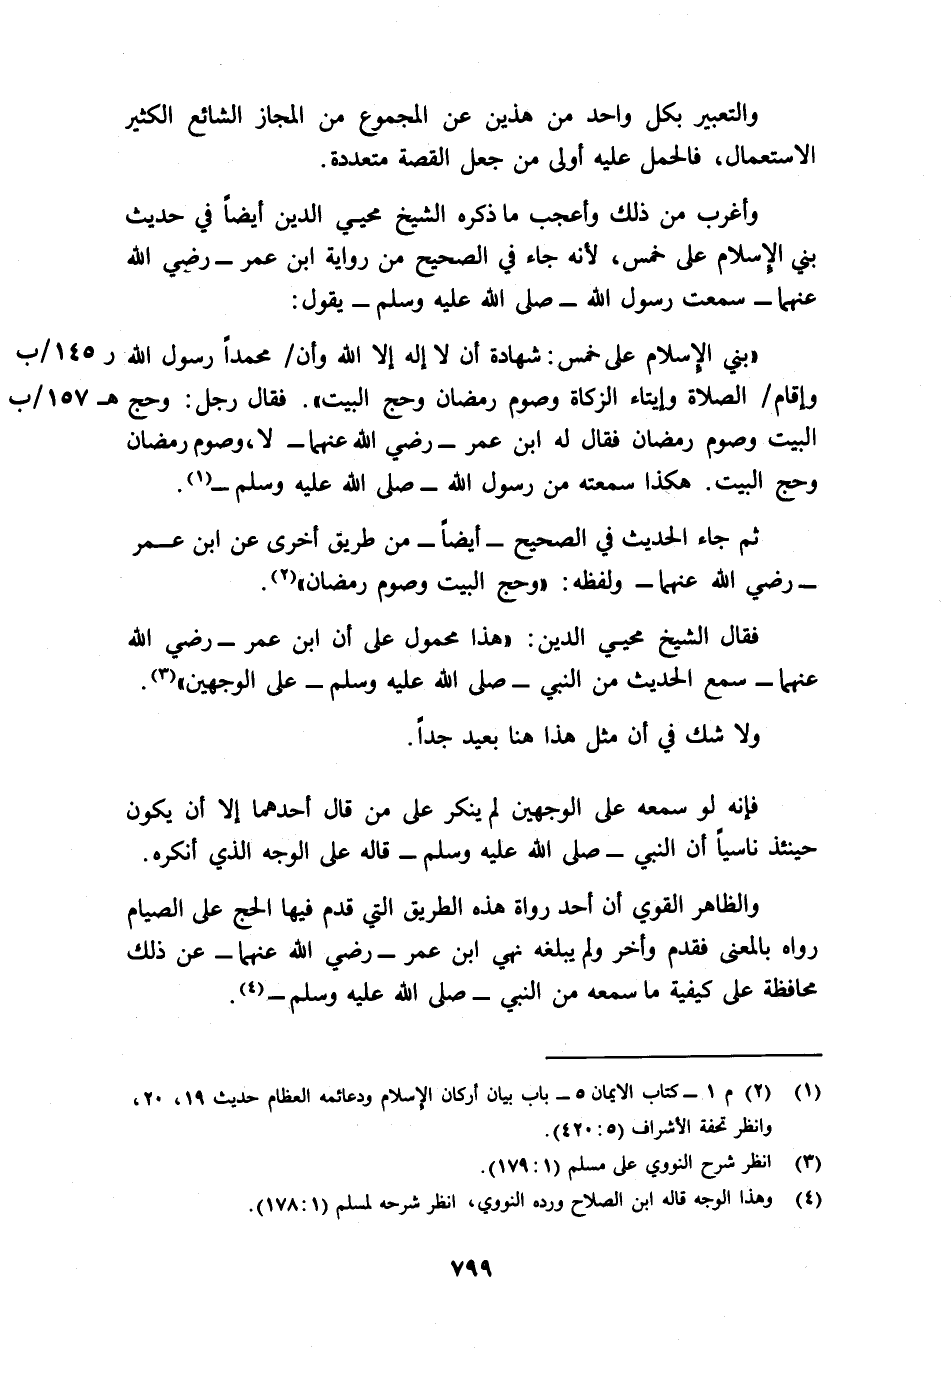 والتعبير بكل واحد من هذين عن المجموع من المجاز الشائع الكثير
الاستعمال، فالحمل عليه أولى من جعل القصة متعددة.
وأغرب من ذلك وأعجب ما ذكره الشيخ محيي الدين أيضاً في حديث
بني الإسلام على خمس، لأنه جاء في الصحيح من رواية ابن عمر ــ رضي الله
عنهما ــ سمعت رسول الله ــ صلى الله عليه وسلم ــ يقول:
«بني الإسلام على خمس: شهادة أن لا إله إلا الله وأن/ محمداً رسول الله ر ١٤٥/ب
وإقام/ الصلاة وإيتاء الزكاة وصوم رمضان وحج البيت». فقال رجل: وحج هـ ١٥٧/ب
البيت وصوم رمضان فقال له ابن عمر ــ رضي الله عنهما ــ لا، وصوم رمضان
وحج البيت. هكذا سمعته من رسول الله ــ صلى الله عليه وسلم ــ(١).
ثم جاء الحديث في الصحيح ــ أيضاً ــ من طريق أخرى عن ابن عمر
ــ رضي الله عنهما ــ ولفظه: «وحج البيت وصوم رمضان»(٢).
فقال الشيخ محيي الدين: «هذا محمول على أن ابن عمر ــ رضي الله
عنهما ــ سمع الحديث من النبي ــ صلى الله عليه وسلم ــ على الوجهين»(٣).
ولا شك في أن مثل هذا هنا بعيد جداً.
فإنه لو سمعه على الوجهين لم ينكر على من قال أحدهما إلا أن يكون
حينئذ ناسياً أن النبي ــ صلى الله عليه وسلم ــ قاله على الوجه الذي أنكره.
والظاهر القوي أن أحد رواة هذه الطريق التي قدم فيها الحج على الصيام
رواه بالمعنى فقدم وأخر ولم يبلغه نهي ابن عمر ــ رضي الله عنهما ــ عن ذلك
محافظة على كيفية ما سمعه من النبي ــ صلى الله عليه وسلم ــ(٤).
(١) (٢) م ١ ــ كتاب الايمان ٥ ــ باب بيان أركان الإسلام ودعائمه العظام حديث ١٩، ٢٠،
وانظر تحفة الأشراف (٥: ٤٢٠).
(٣) انظر شرح النووي على مسلم (١: ١٧٩).
(٤) وهذا الوجه قاله ابن الصلاح ورده النووي، انظر شرحه لمسلم (١: ١٧٨).
٧٩٩